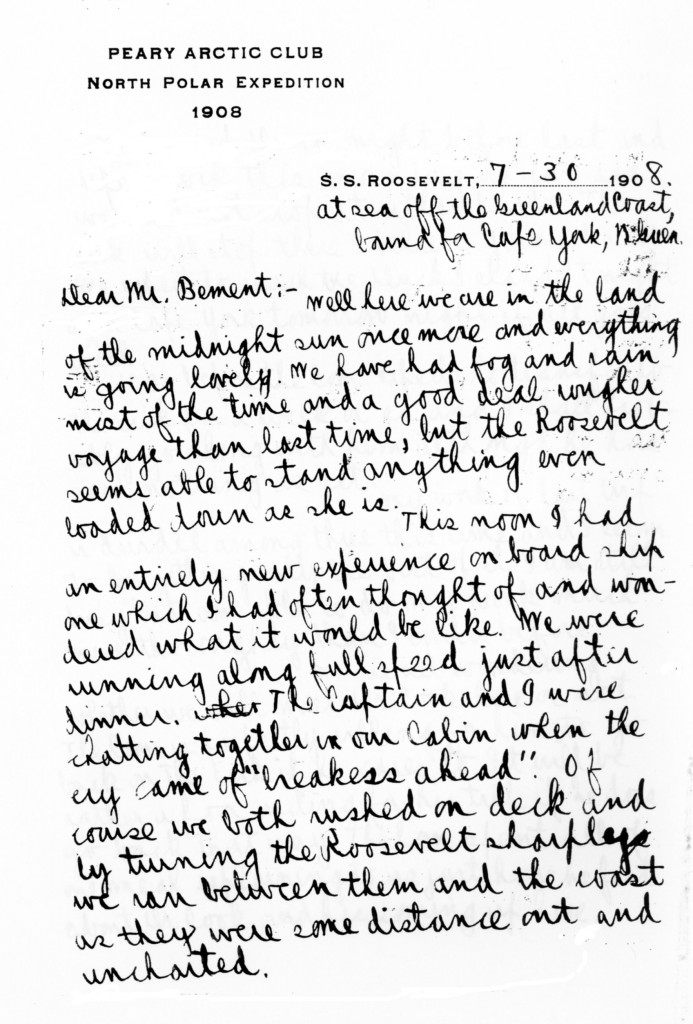 PEARY ARCTIC CLUB
NORTH POLAR EXPEDITION
1908
S. S. ROOSEVELT, 7-30 1908.
at sea off the Greenland Coast,
bound for Cape York, N. Green.
Dear Mr. Bement:- Well here we are in the land
of the midnight sun once more and everything
is going lovely. We have had fog and rain
most of the time and a good deal rougher
voyage than last time, but the Roosevelt
seems able to stand anything even
loaded down as she is. This noon I had
an entirely new experience on board ship
one which I had often thought of and won-
dered what it would be like. We were
running along full speed just after
dinner. when The Captain and I were
chatting together in our Cabin when the
cry came of "breakers ahead". Of
course we both rushed on deck and
by turning the Roosevelt sharply
we ran between them and the coast
as they were some distance out and
uncharted.